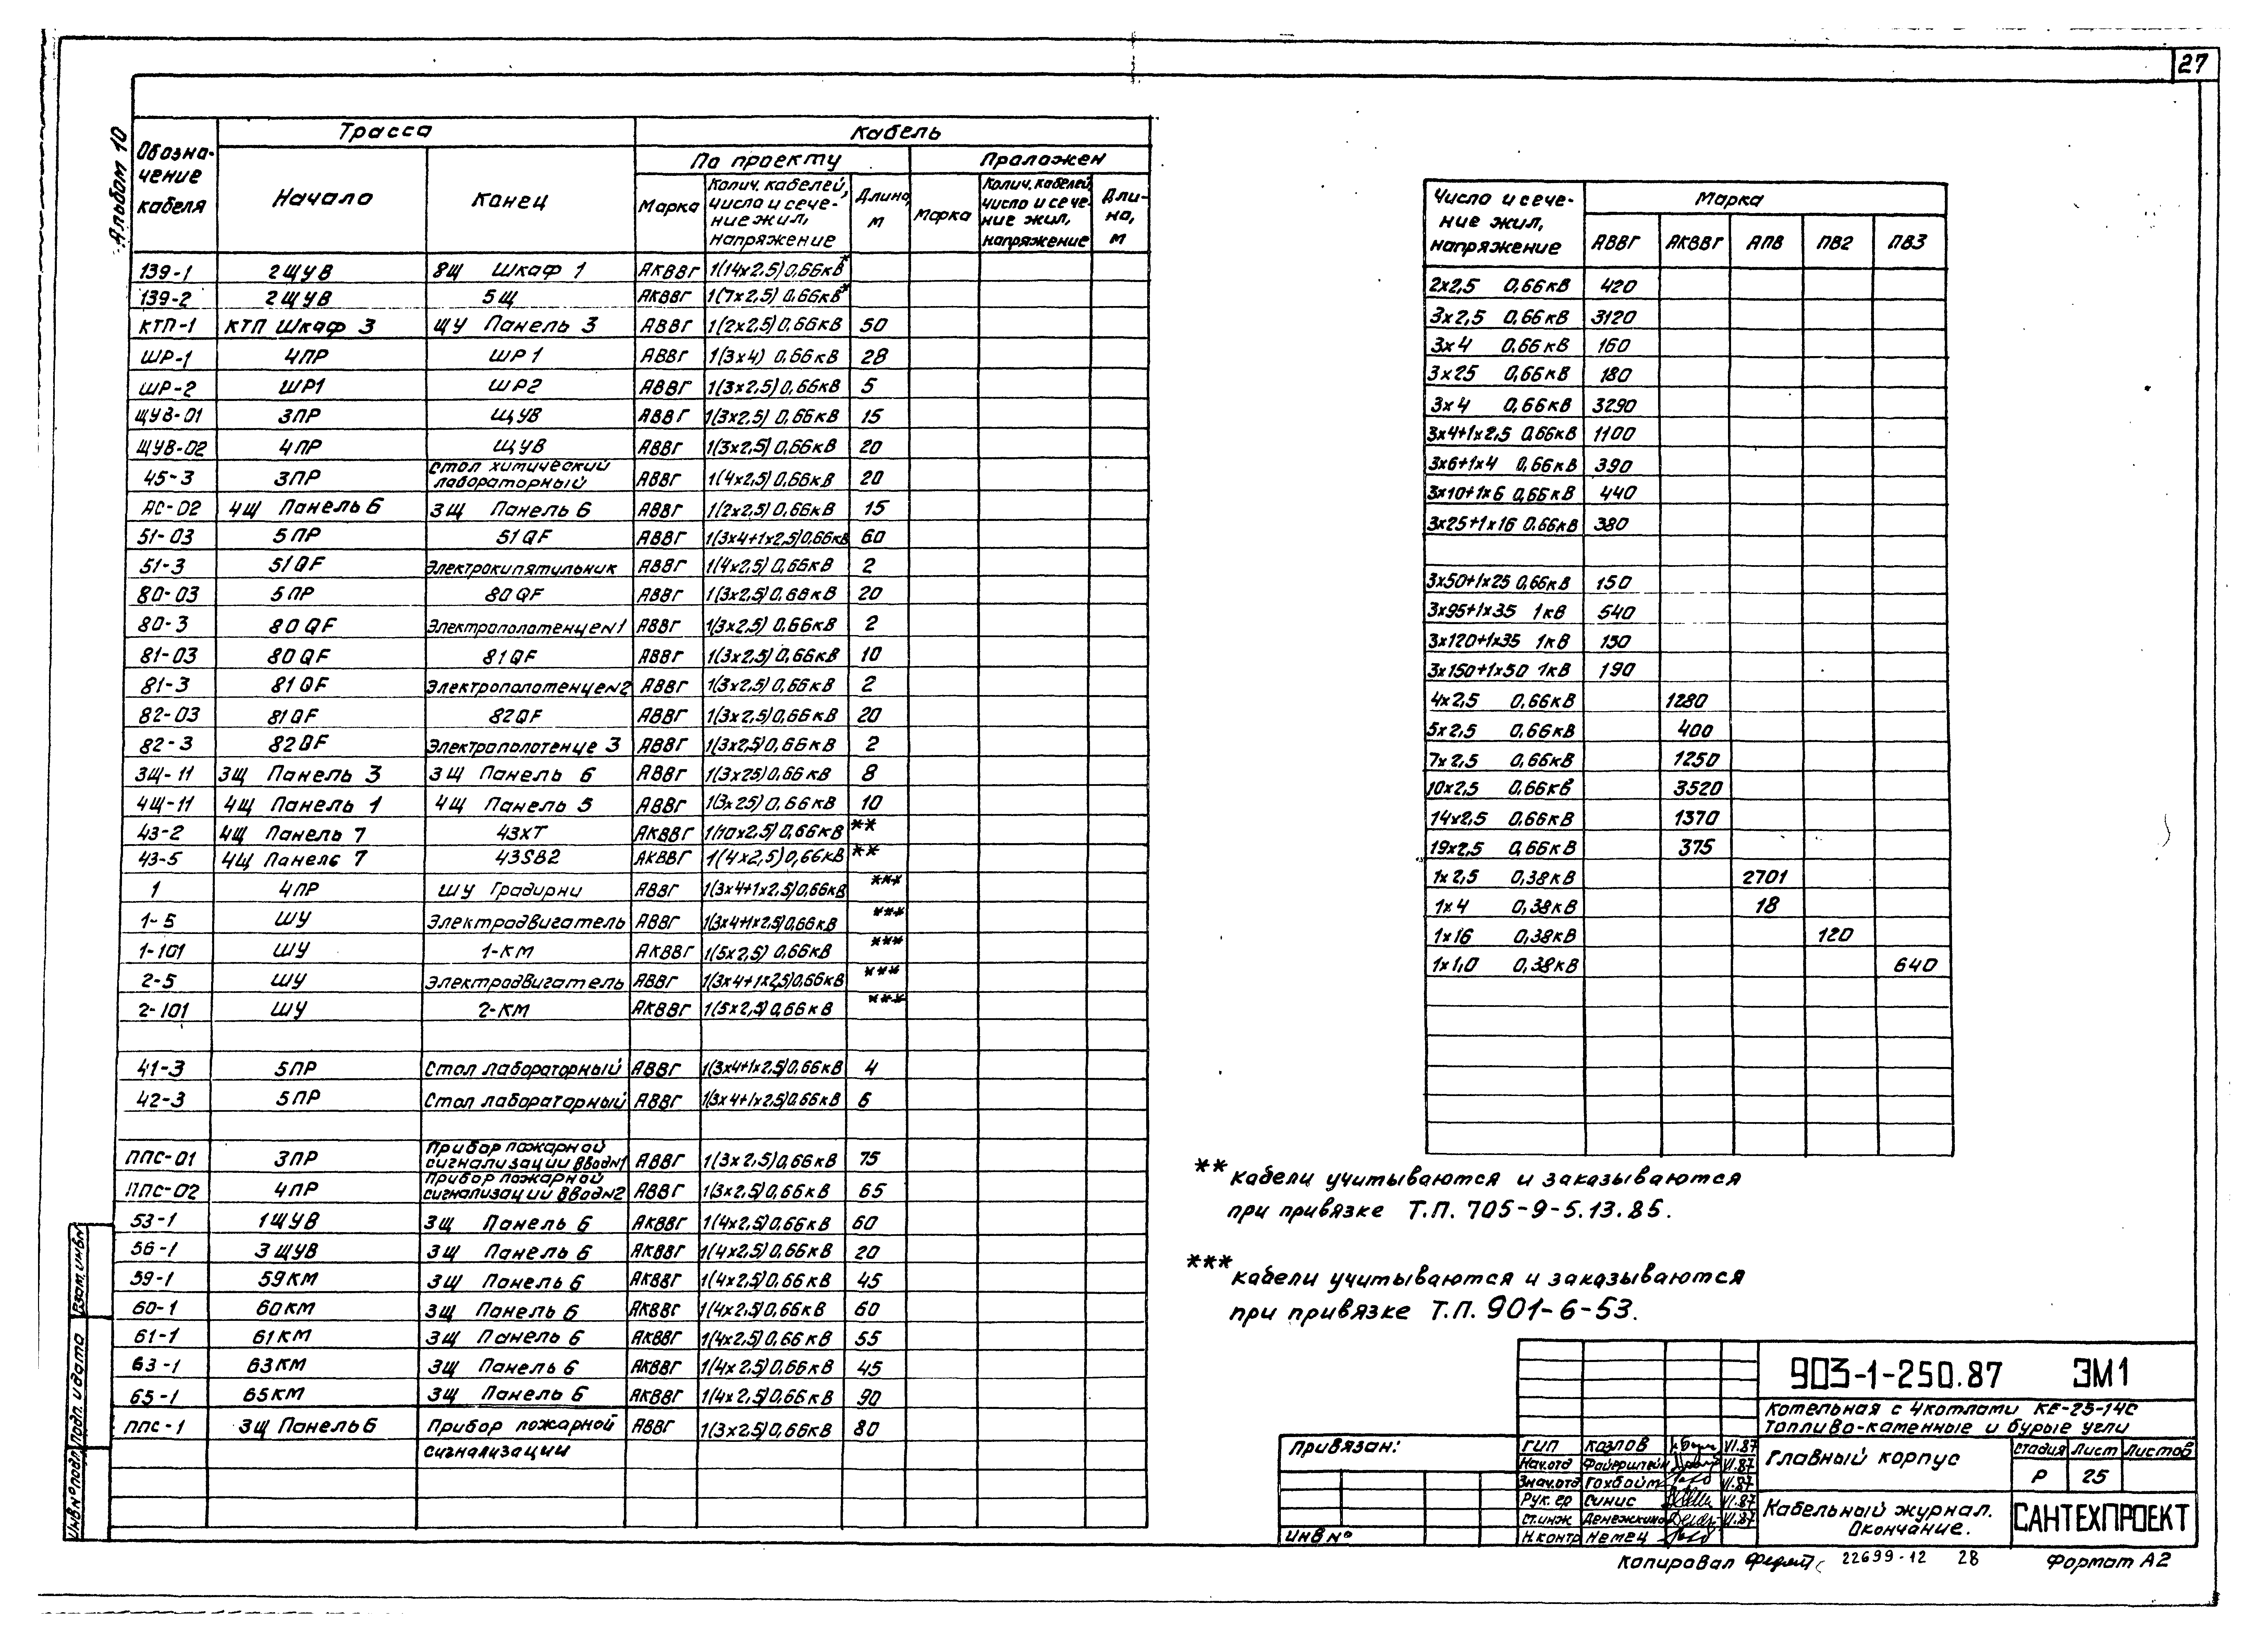 27
Альбом 10
Обозна-
чение
кабеля
Трасса
Кабель
Начало
Конец
По проекту
Проложен
Марка
Колич. кабелей,
число и сече-
ние жил,
напряжение
Длина,
м
Марка
Колич. кабелей
число и сече-
ние жил,
напряжение
Дли-
на,
м
139-1 2ЩУВ 8Щ Шкаф 1 АКВВГ 1(14х2,5) 0,66кВ*
139-2 2ЩУВ 5Щ АКВВГ 1(7х2,5) 0,66кВ*
КТП-1 КТП Шкаф 3 ЩУ Панель 3 АВВГ 1(2х2,5) 0,66кВ 50
ШР-1 4ПР ШР1 АВВГ 1(3х4) 0,66кВ 28
ШР-2 ШР1 ШР2 АВВГ 1(3х2,5) 0,66кВ 5
ЩУВ-01 3ПР ЩУВ АВВГ 1(3х2,5) 0,66кВ 15
ЩУВ-02 4ПР ЩУВ АВВГ 1(3х2,5) 0,66кВ 20
45-3 3ПР Стол химический лабораторный АВВГ 1(4х2,5) 0,66кВ 20
АС-02 4Щ Панель 6 3Щ Панель 6 АВВГ 1(2х2,5) 0,66кВ 15
51-03 5ПР 51QF АВВГ 1(3х4+1х2,5) 0,66кВ 60
51-3 51QF Электрокипятильник АВВГ 1(4х2,5) 0,66кВ 2
80-03 5ПР 80QF АВВГ 1(3х2,5) 0,66кВ 20
80-3 80QF Электрополотенце№1 АВВГ 1(3х2,5) 0,66кВ 2
81-03 80QF 81QF АВВГ 1(3х2,5) 0,66кВ 10
81-3 81QF Электрополотенце№2 АВВГ 1(3х2,5) 0,66кВ 2
82-03 81QF 82QF АВВГ 1(3х2,5) 0,66кВ 20
82-3 82QF Электрополотенце 3 АВВГ 1(3х2,5) 0,66кВ 2
3Щ-11 3Щ Панель 3 3Щ Панель 6 АВВГ 1(3х25) 0,66кВ 8
4Щ-11 4Щ Панель 1 4Щ Панель 5 АВВГ 1(3х25) 0,66кВ 10
43-2 4Щ Панель 7 43ХТ АКВВГ 1(10х2,5) 0,66кВ **
43-5 4Щ Панель 7 43SB2 АКВВГ 1(4х2,5) 0,66кВ **
1 4ПР ШУ Градирни АВВГ 1(3х4+1х2,5) 0,66кВ ***
1-5 ШУ Электродвигатель АВВГ 1(3х4+1х2,5) 0,66кВ ***
1-101 ШУ 1-КМ АКВВГ 1(5х2,5) 0,66кВ ***
2-5 ШУ Электродвигатель АВВГ 1(3х4+1х2,5) 0,66кВ ***
2-101 ШУ 2-КМ АКВВГ 1(5х2,5) 0,66кВ ***
41-3 5ПР Стол лабораторный АВВГ 1(3х4+1х2,5) 0,66кВ 4
42-3 5ПР Стол лабораторный АВВГ 1(3х4+1х2,5) 0,66кВ 6
ППС-01 3ПР Прибор пожарной сигнализации ввод№1 АВВГ 1(3х2,5) 0,66кВ 75
ППС-02 4ПР Прибор пожарной сигнализации ввод№2 АВВГ 1(3х2,5) 0,66кВ 65
53-1 1ЩУВ 3Щ Панель 6 АКВВГ 1(4х2,5) 0,66кВ 60
56-1 3ЩУВ 3Щ Панель 6 АКВВГ 1(4х2,5) 0,66кВ 20
59-1 59КМ 3Щ Панель 6 АКВВГ 1(4х2,5) 0,66кВ 45
60-1 60КМ 3Щ Панель 6 АКВВГ 1(4х2,5) 0,66кВ 60
61-1 61КМ 3Щ Панель 6 АКВВГ 1(4х2,5) 0,66кВ 55
63-1 63КМ 3Щ Панель 6 АКВВГ 1(4х2,5) 0,66кВ 45
65-1 65КМ 3Щ Панель 6 АКВВГ 1(4х2,5) 0,66кВ 90
ППС-1 3Щ Панель 6 Прибор пожарной АВВГ 1(3х2,5) 0,66кВ 80
сигнализации
Число и сече-
ние жил,
напряжение
Марка
АВВГ АКВВГ АПВ ПВ2 ПВ3
2х2,5 0,66кВ 420
3х2,5 0,66кВ 3120
3х4 0,66кВ 160
3х25 0,66кВ 180
3х4 0,66кВ 3290
3х4+1х2,5 0,66кВ 1100
3х6+1х4 0,66кВ 390
3х10+1х6 0,66кВ 440
3х25+1х16 0,66кВ 380
3х50+1х25 0,66кВ 150
3х95+1х35 1кВ 540
3х120+1х35 1кВ 150
3х150+1х50 1кВ 190
4х2,5 0,66кВ 1280
5х2,5 0,66кВ 400
7х2,5 0,66кВ 1250
10х2,5 0,66кВ 3520
14х2,5 0,66кВ 1370
19х2,5 0,66кВ 375
1х2,5 0,38кВ 2701
1х4 0,38кВ 18
1х16 0,38кВ 120
1х1,0 0,38кВ 640
** кабели учитываются и заказываются
при привязке Т.П. 705-9-5.13.85.
*** кабели учитываются и заказываются
при привязке Т.П. 901-6-53.
Взам. инв№
Подп. и дата
Инв№подл.
Привязан:
Инв№
903-1-250.87 ЭМ1
Котельная с 4котлами КЕ-25-14С
Топливо-каменные и бурые угли
ГИП Козлов VI.87
Нач.отд Файерштейн VI.87
Знач.отд Гохбойм VI.87
Рук.гр Синис VI.87
ст.инж Денежкина VI.87
Н.контр Немец
Главный корпус
Стадия Лист Листов
Р 25
Кабельный журнал.
Окончание.
САНТЕХПРОЕКТ
Копировал 22699-12 28 Формат А2